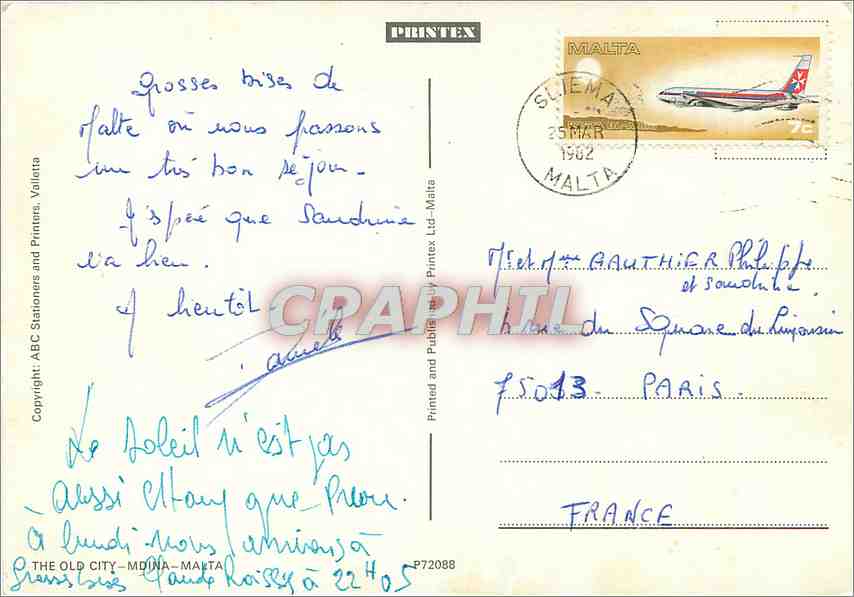 PRINTEX
MALTA
7c
SLIEMA
25 MAR
1982
MALTA
Grosses bises de
Malte où nous passons
un très bon séjour.
J'espère que Sandrine
va bien.
A bientôt
Le soleil n'est pas
aussi chaud que
à lundi nous arrivons à
Grosses bises Claude Roissy à 22H05
Mr et Mme GAUTHIER Philippe
et Sandrine.
4 rue du Square du Limousin
75013 - PARIS -
FRANCE
CPARHIL
Copyright: ABC Stationers and Printers, Valletta
Printed and Published by Printex Ltd—Malta
THE OLD CITY—MDINA—MALTA
P72088